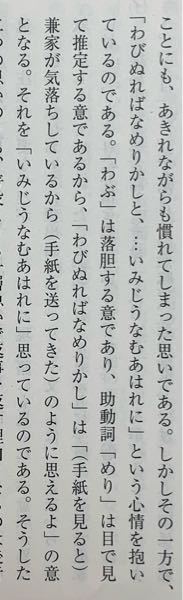 ことにも、あきれながらも慣れてしまった思いである。しかしその一方で、
「わびぬればなめりかしと、…いみじうなむあはれに」という心情を抱い
ているのである。「わぶ」は落胆する意であり、助動詞「めり」は目で見
て推定する意であるから、「わびぬればなめりかし」は「（手紙を見ると）
兼家が気落ちしているから（手紙を送ってきた）のように思えるよ」の意
となる。それを「いみじうなむあはれに」思っているのである。そうした